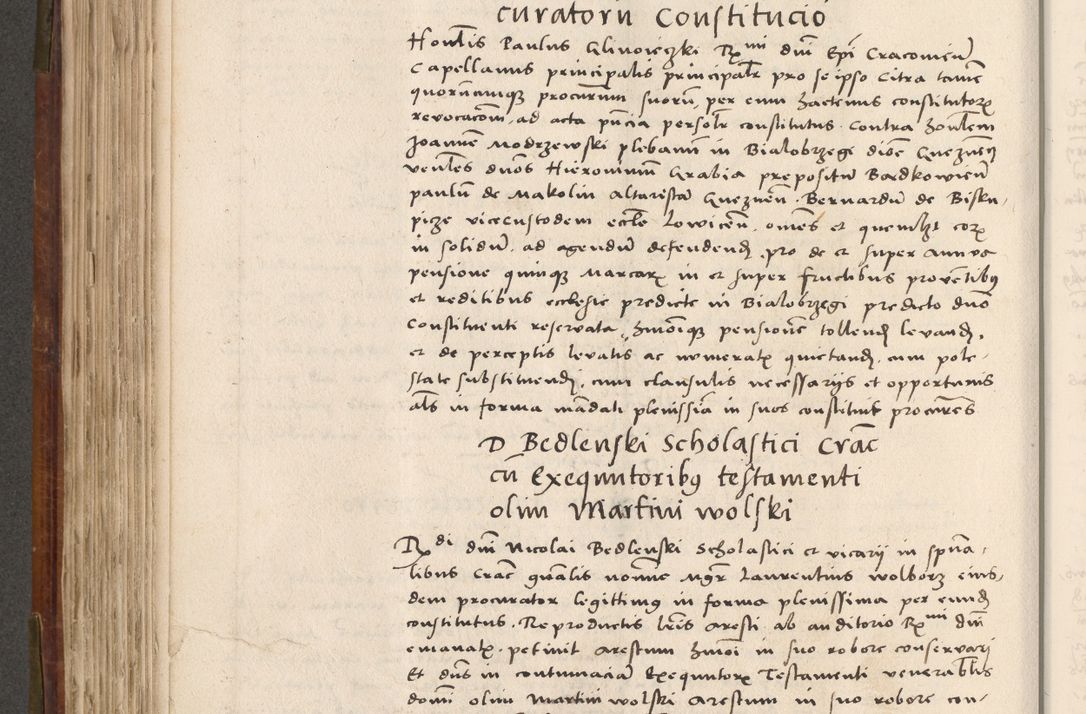 curatorũ Constitucio
Honlis Paulus Glinoieczki Rmi dñi Epi Cracovień
Capellanus principalis principalr pro se ipso Citra tamē
quorumcunqȝ procurum suorũ, per eum hactenus constitutorꝝ
revocacõm, ad acta pñcia personlr constitutus. Contra honlem
Joannē Modrzewski plebanũ in Bialobrzegi dioē Gneznēn
venles dnos Hieronimum Grabia prepositũ Bedkowień
paulũ de Makolin Altaristã Gneznēn. Bernardũ de Bisku,
picze vicecustodem eccle Lowiceñ. omēs et quemlibt eorꝝ
in solidũ. ad agendũ defendendꝫ pro de et super annua
pensione quinqȝ Marcarꝝ in et super fructibus proventibus
et reditibus ecclesie predicte in Bialobrzegi predicto dno
Constituenti reservata, hmoiqȝ pensionē tollendꝫ levandꝫ,
et de perceptis levatis ac numeratꝭ quietandꝫ. cum pote-
state substituendꝫ, cum clausulis necessarijs et opportunis
als in forma mandati plenissia in suos constituit procures
D Bedlenski Scholastici Crac
cũ Exequutoribȝ testamenti
olim Martini Wolski
Rdi dñi Nicolai Bedlenski Scholastici et vicarij in spũa,
libus Crac gnalis noĩe Mgr Laurentius Wolborz eius,
dem procurator legittimus in forma plenissima per eundꝫ
constitutus. Reproductis lris Aresti ab auditorio Rmi dñi
emanatꝭ. petiuit Arestum hmoi in suo robore conservari
Et dñs in contumaciã Exequutorꝝ Testamenti venerablis
domi olim Martini Wolski Arestum in suo robore con-